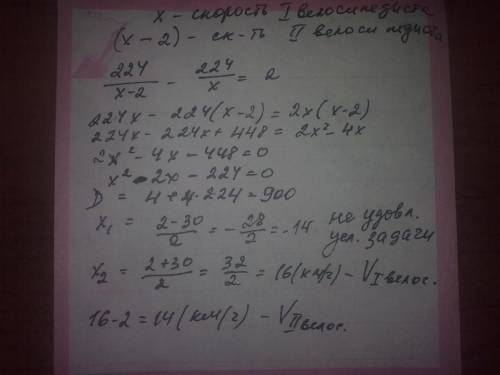 x - скорость I велосипедиста
(x - 2) - ск-ть II велосипедиста
224/(x-2) - 224/x = 2
224x - 224(x-2) = 2x(x-2)
224x - 224x + 448 = 2x² - 4x
2x² - 4x - 448 = 0
x² - 2x - 224 = 0
D = 4 + 4·224 = 900
x₁ = (2-30)/2 = -28/2 = -14 не удовл. усл. задачи
x₂ = (2+30)/2 = 32/2 = 16 (км/ч) - V I велос.
16 - 2 = 14 (км/ч) - V II велос.